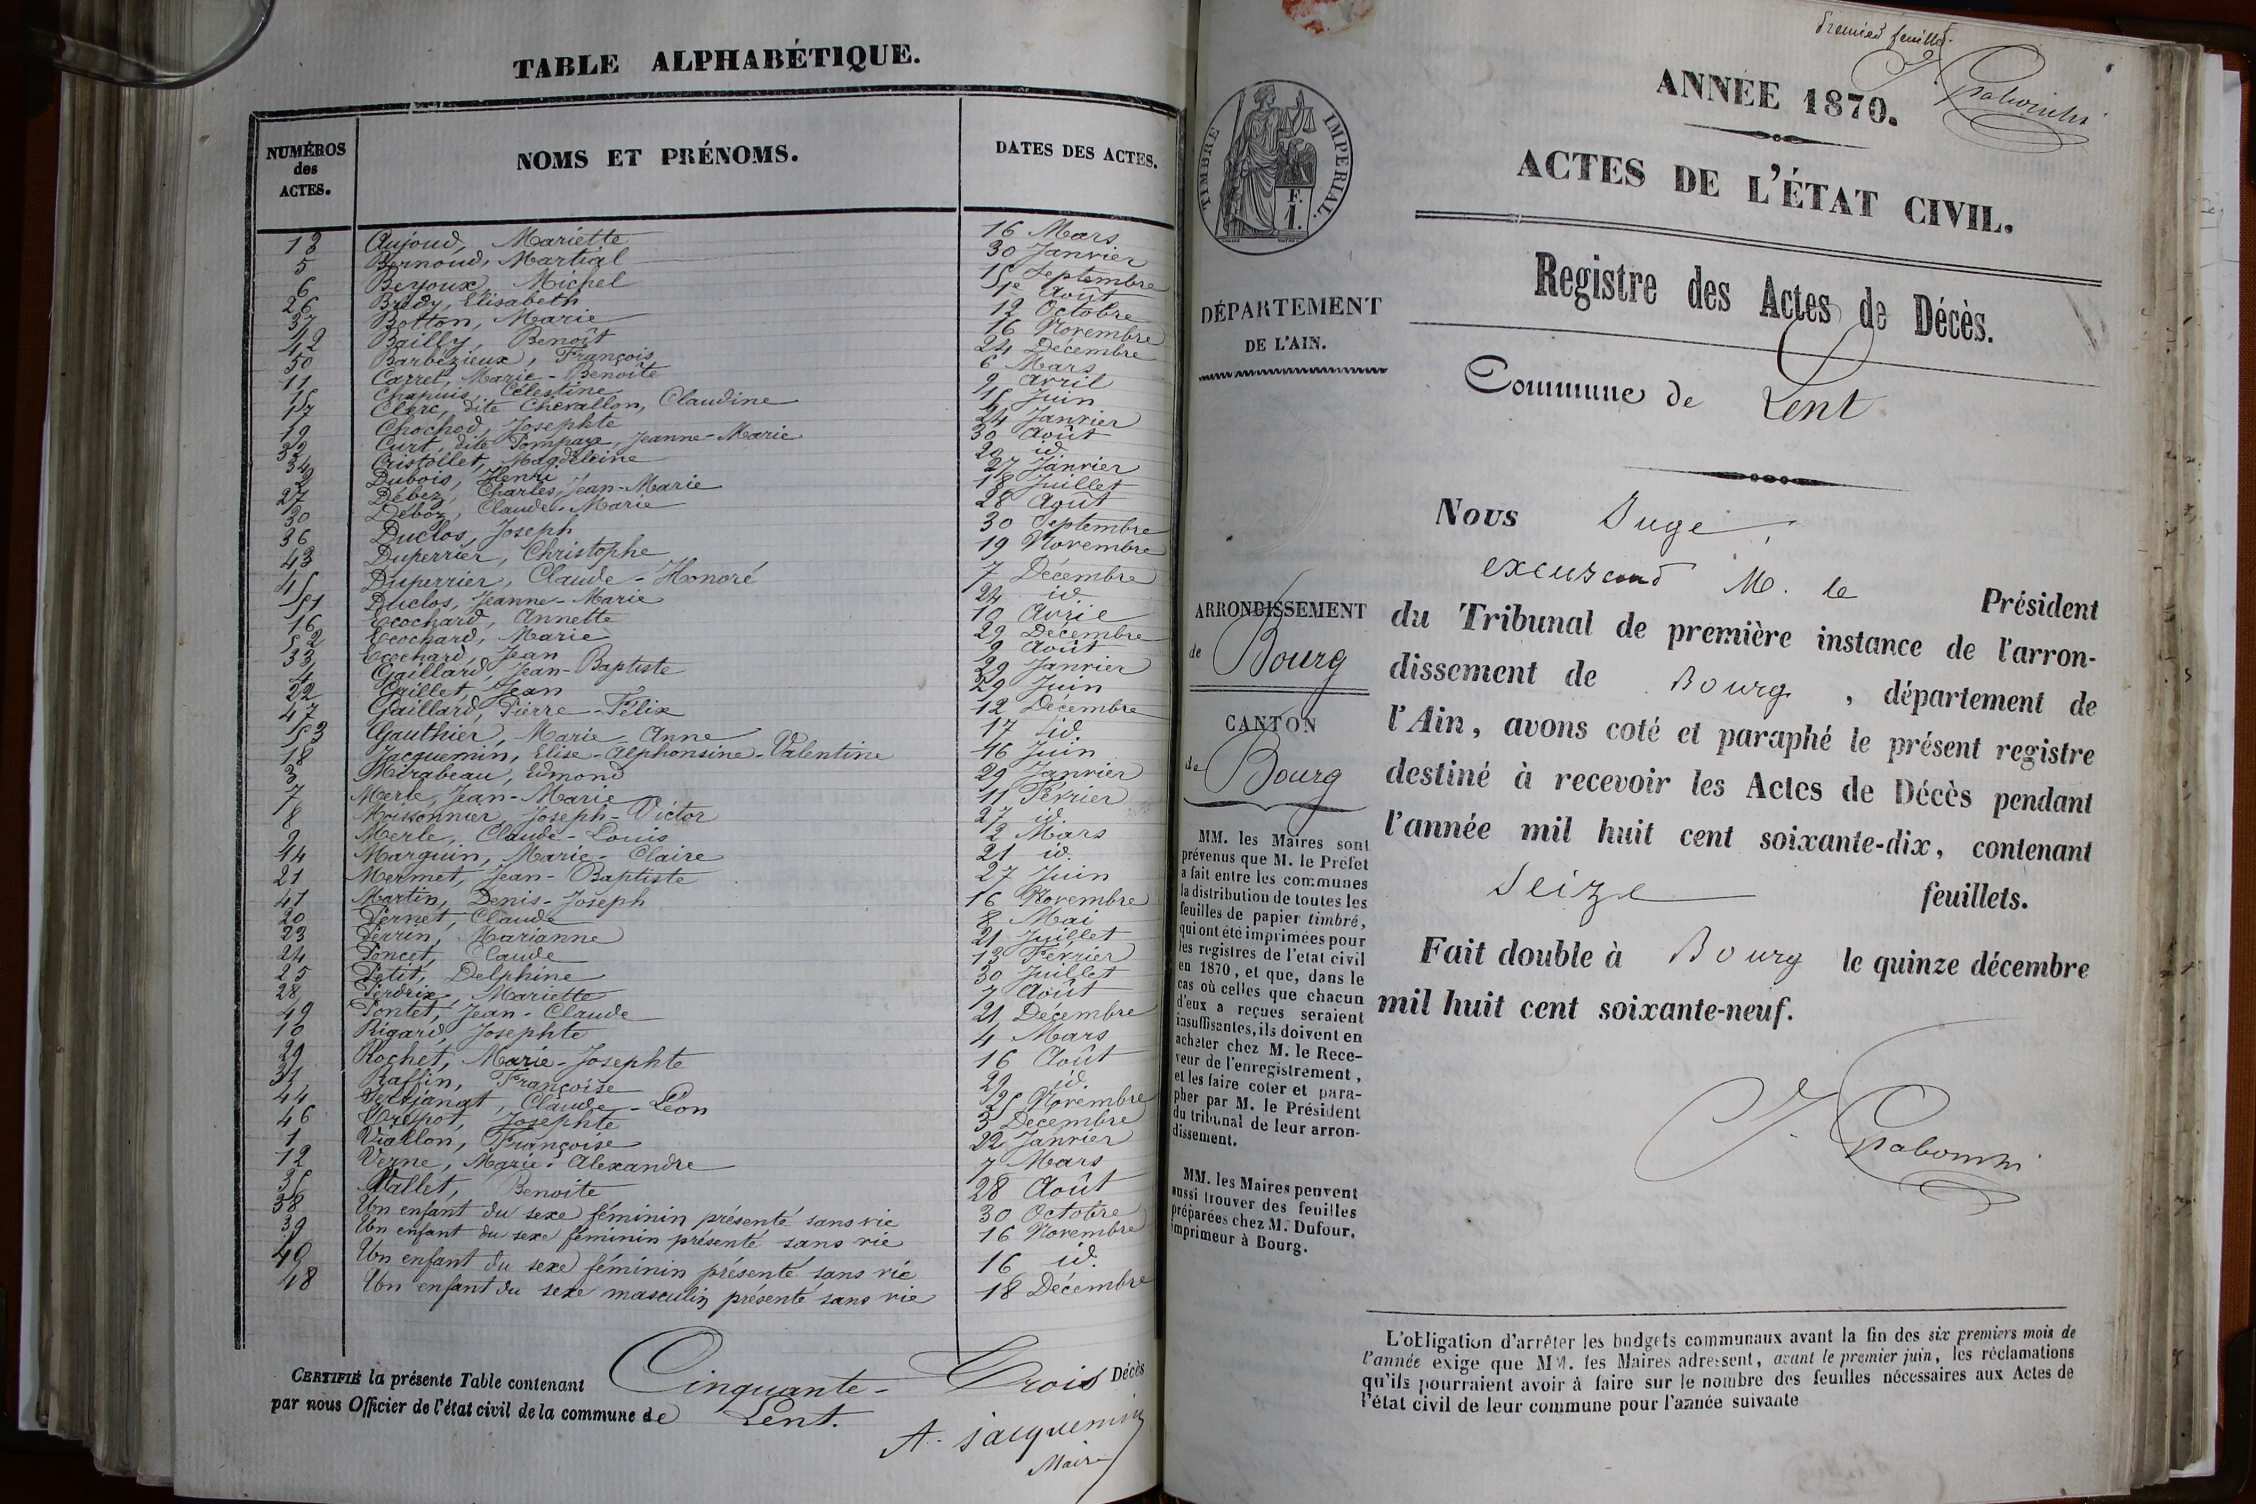 TABLE ALPHABÉTIQUE.
NUMÉROS des ACTES.
NOMS ET PRÉNOMS.
DATES DES ACTES.
13 Aujoud, Mariette 16 Mars
5 Bernoud, Martial 30 Janvier
6 Beyoux, Michel Septembre
26 Élisabeth Août
37 Botton, Marie 12 Octobre
42 Bailly, Benoît 16 Novembre
50 Barbézieux, François 24 Décembre
11 Carret, Marie-Benoîte 6 Mars
15 Chapuis, Célestine 9 Avril
17 Clerc, dite Chevallon, Claudine 15 Juin
19 Chochod, Josephte 24 Janvier
32 Curt, dite Pompaye, Jeanne-Marie 30 Août
34 Cristollet, Magdeleine 20 id.
2 Dubois, Henri 27 Janvier
27 Débez, Charles, Jean-Marie 18 Juillet
30 Déboz, Claude-Marie 28 Août
36 Duclos, Joseph 30 Septembre
43 Duperrier, Christophe 19 Novembre
45 Duperrier, Claude-Honoré 7 Décembre
51 Duclos, Jeanne-Marie 24 id.
16 Ecochard, Annette 10 Avril
52 Ecochard, Marie 29 Décembre
33 Ecochard, Jean 9 Août
4 Gaillard, Jean-Baptiste 29 Janvier
22 Gaillet, Jean 29 Juin
47 Gaillard, Pierre-Félix 12 Décembre
53 Gauthier, Marie-Anne 17 id.
18 Jacquemin, Elise-Alphonsine-Valentine 16 Juin
3 Mirabeau, Edmond 29 Janvier
7 Merle, Jean-Marie 11 Février
8 Moissonnier, Joseph-Victor 27 id.
9 Merle, Claude-Louis 2 Mars
14 Marguin, Marie-Claire 21 id.
21 Mermet, Jean-Baptiste 27 Juin
41 Martin, Denis-Joseph 16 Novembre
20 Pernet, Claude 8 Mai
23 Perrin, Marianne 21 Juillet
24 Poncet, Claude 13 Février
25 Petit, Delphine 30 Juillet
28 Perdrix, Mariette 7 Août
49 Pontet, Jean-Claude 21 Décembre
10 Rigard, Josephte 4 Mars
29 Rochet, Marie-Josephte 16 Août
31 Raffin, Françoise 29 id.
44 Claude-Léon 25 Novembre
46 Josephte 3 Décembre
1 Viallon, Françoise 22 Janvier
12 Verne, Marie-Alexandre 7 Mars
35 Vallet, Benoîte 28 Août
38 Un enfant du sexe féminin présenté sans vie 30 Octobre
39 Un enfant du sexe féminin présenté sans vie 16 Novembre
40 Un enfant du sexe féminin présenté sans vie 16 id.
48 Un enfant du sexe masculin présenté sans vie 18 Décembre
CERTIFIÉ la présente Table contenant Cinquante-Trois Décès
par nous Officier de l'état civil de la commune de Lent.
A. Jacquemin
Maire
Premier feuillet.
TIMBRE IMPÉRIAL.
F.
1.
DÉPARTEMENT
DE L'AIN.
ARRONDISSEMENT
de Bourg
CANTON
de Bourg
MM. les Maires sont
prévenus que M. le Préfet
a fait entre les communes
la distribution de toutes les
feuilles de papier timbré,
qui ont été imprimées pour
les registres de l'état civil
en 1870, et que, dans le
cas où celles que chacun
d'eux a reçues seraient
insuffisantes, ils doivent en
acheter chez M. le Rece-
veur de l'enregistrement,
et les faire coter et para-
pher par M. le Président
du tribunal de leur arron-
dissement.
MM. les Maires peuvent
aussi trouver des feuilles
préparées chez M. Dufour,
imprimeur à Bourg.
ANNÉE 1870.
ACTES DE L'ÉTAT CIVIL.
Registre des Actes de Décès.
Commune de Lent
Nous Juge,
excusant M. le Président
du Tribunal de première instance de l'arron-
dissement de Bourg, département de
l'Ain, avons coté et paraphé le présent registre
destiné à recevoir les Actes de Décès pendant
l'année mil huit cent soixante-dix, contenant
seize feuillets.
Fait double à Bourg le quinze décembre
mil huit cent soixante-neuf.
L'obligation d'arrêter les budgets communaux avant la fin des six premiers mois de
l'année exige que MM. les Maires adressent, avant le premier juin, les réclamations
qu'ils pourraient avoir à faire sur le nombre des feuilles nécessaires aux Actes de
l'état civil de leur commune pour l'année suivante